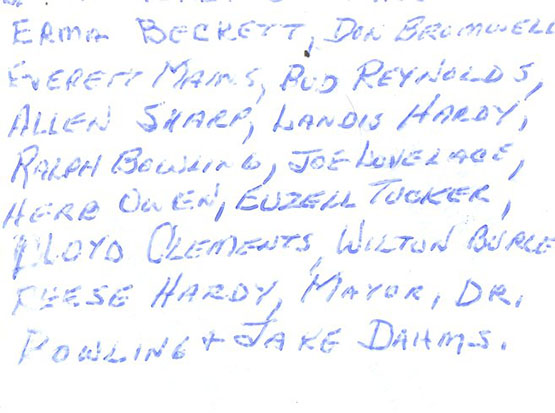 Erma Beckett, Don Bromwell
Everett Mains, Bud Reynolds,
Allen Sharp, Landis Hardy,
Ralph Bowling, Joe Lovelace,
Herb Owen, Euzell Tucker,
Lloyd Clements, Wilton Burle
Reese Hardy, Mayor, Dr.
Powling + Jake Dahms.